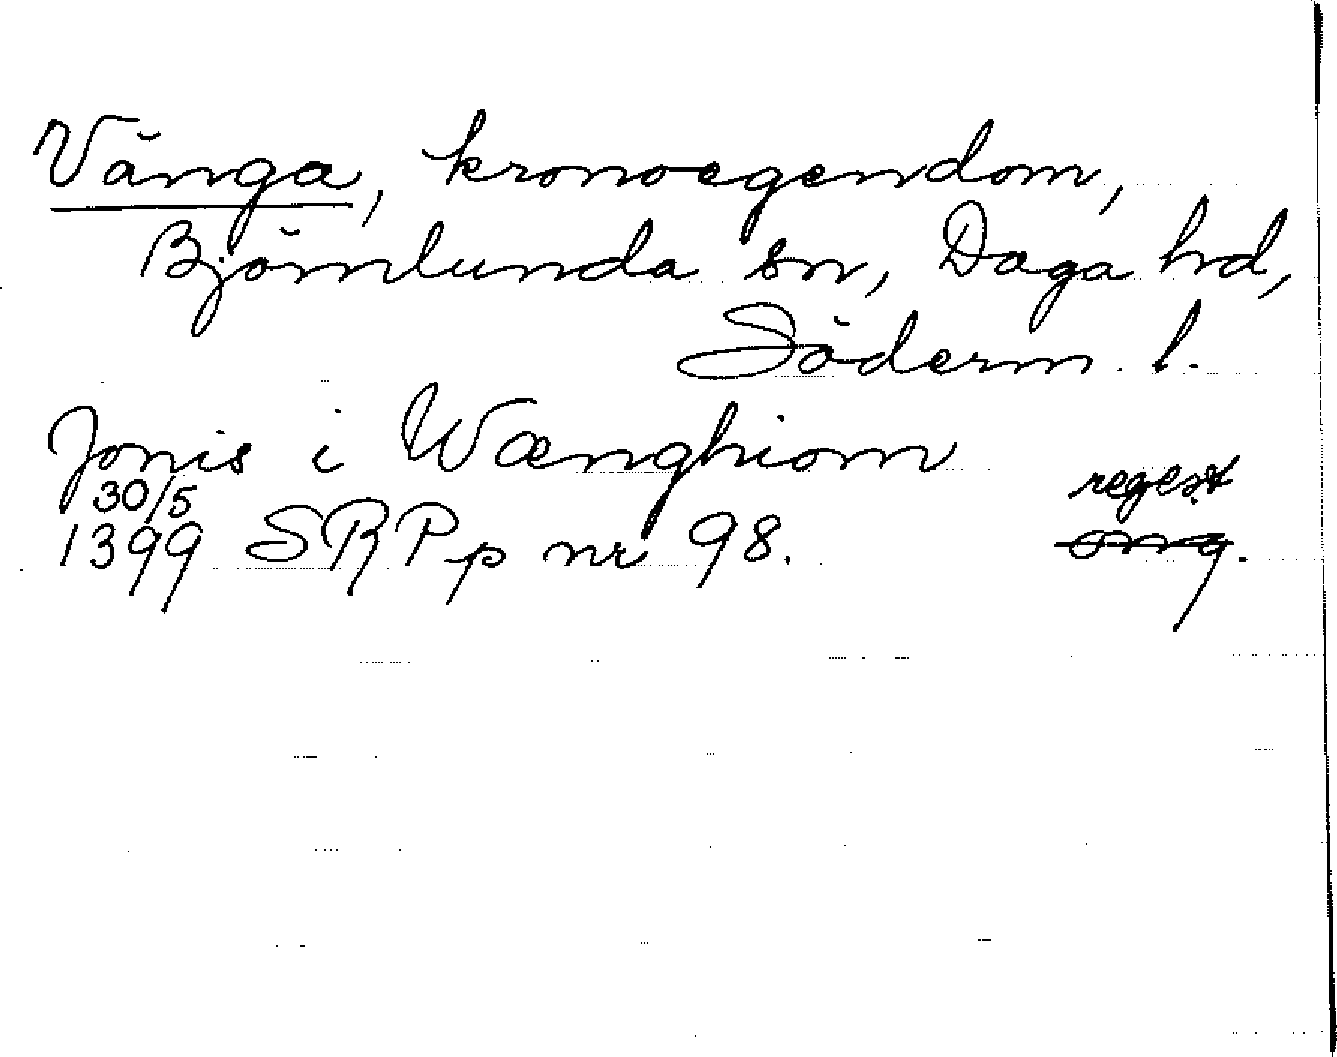 Vänga, kronoegendom,
Björnlunda sn, Daga hd,
Söderm. l.
Jonis i Wænghiom
30/5 regest
1399 SRPp nr 98. orig.